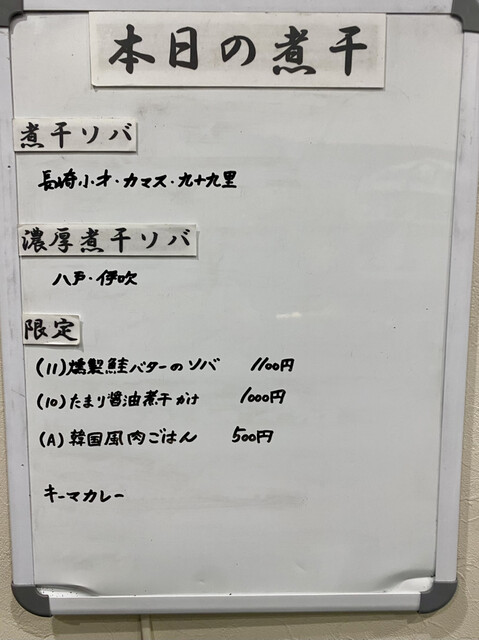 本日の煮干
煮干ソバ
長崎小才・カマス・九十九里
濃厚煮干ソバ
八戸・伊吹
限定
(11)燻製鮭バターのソバ 1100円
(10)たまり醤油煮干かけ 1000円
(A)韓国風肉ごはん 500円
キーマカレー